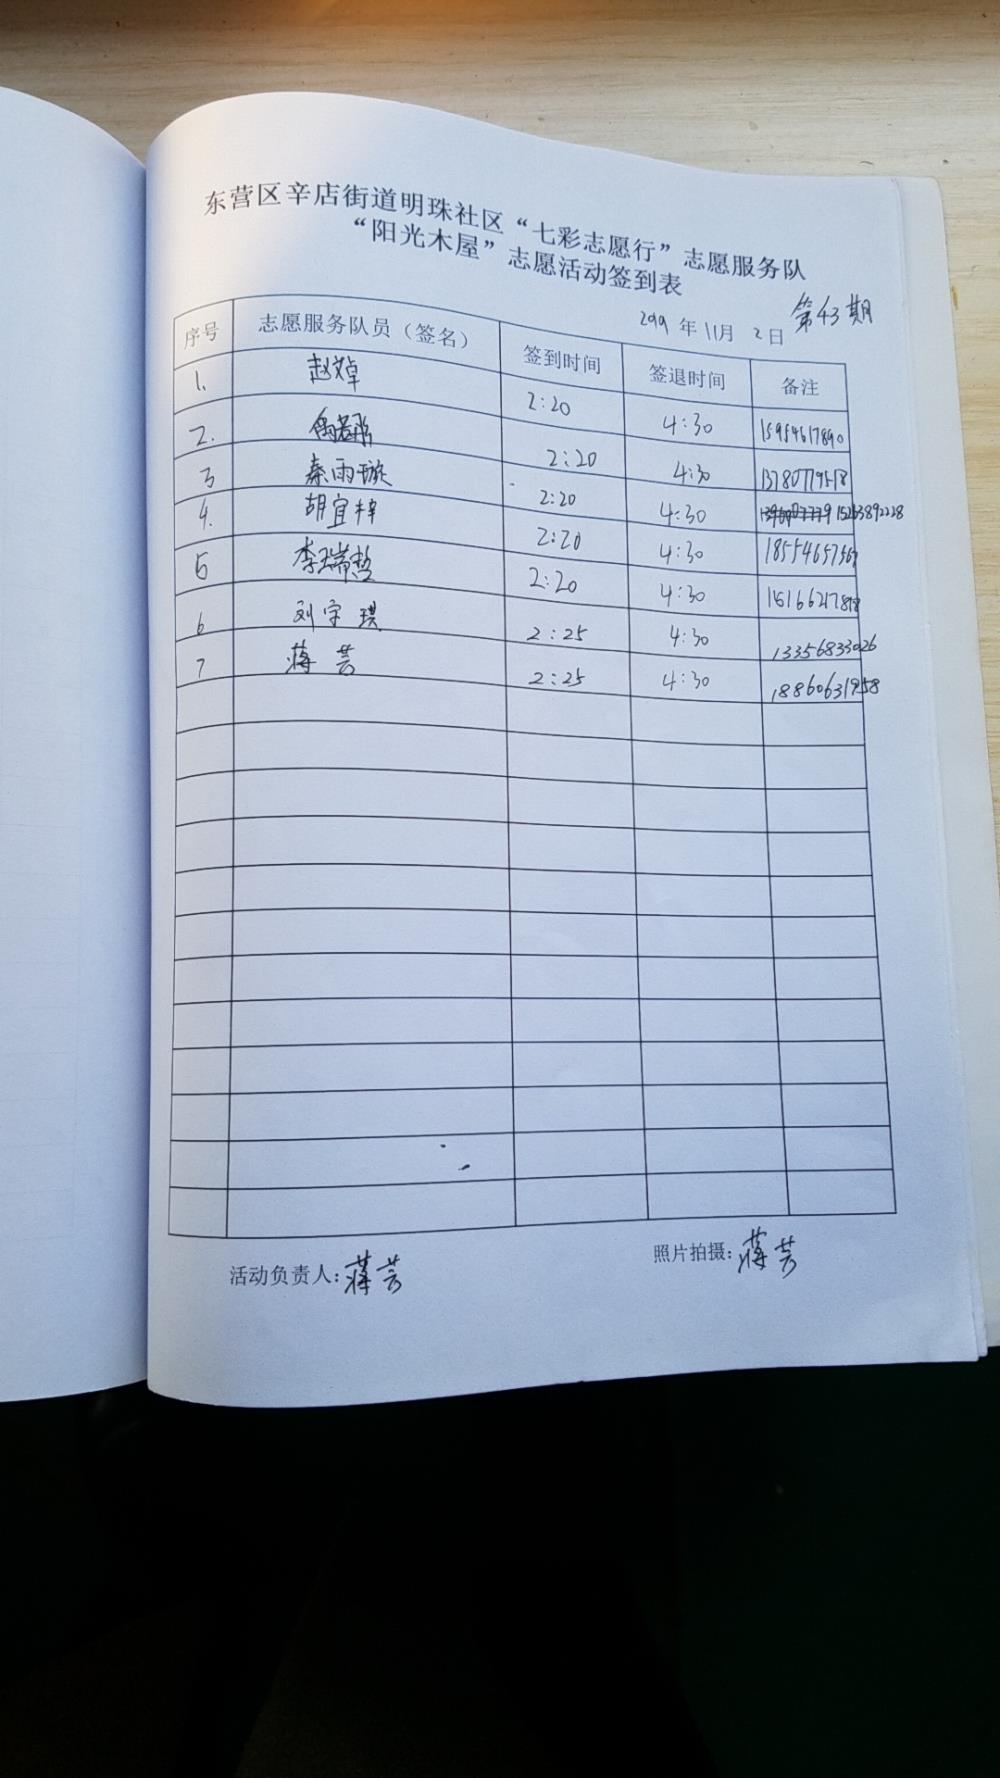 东营区辛店街道明珠社区“七彩志愿行”志愿服务队
“阳光木屋”志愿活动签到表
第43期
2019年11月2日
序号 志愿服务队员（签名） 签到时间 签退时间 备注
1. 赵焯 2:20 4:30 15954617890
2. 2:20 4:30 13780779518
3 秦雨璇 2:20 4:30 15263892228
4. 胡宜梓 2:20 4:30 18554657567
5 李瑞哲 2:20 4:30 15166217898
6 刘宇琪 2:25 4:30 13356833026
7 蒋芸 2:25 4:30 18860631958
活动负责人：蒋芸 照片拍摄：蒋芸